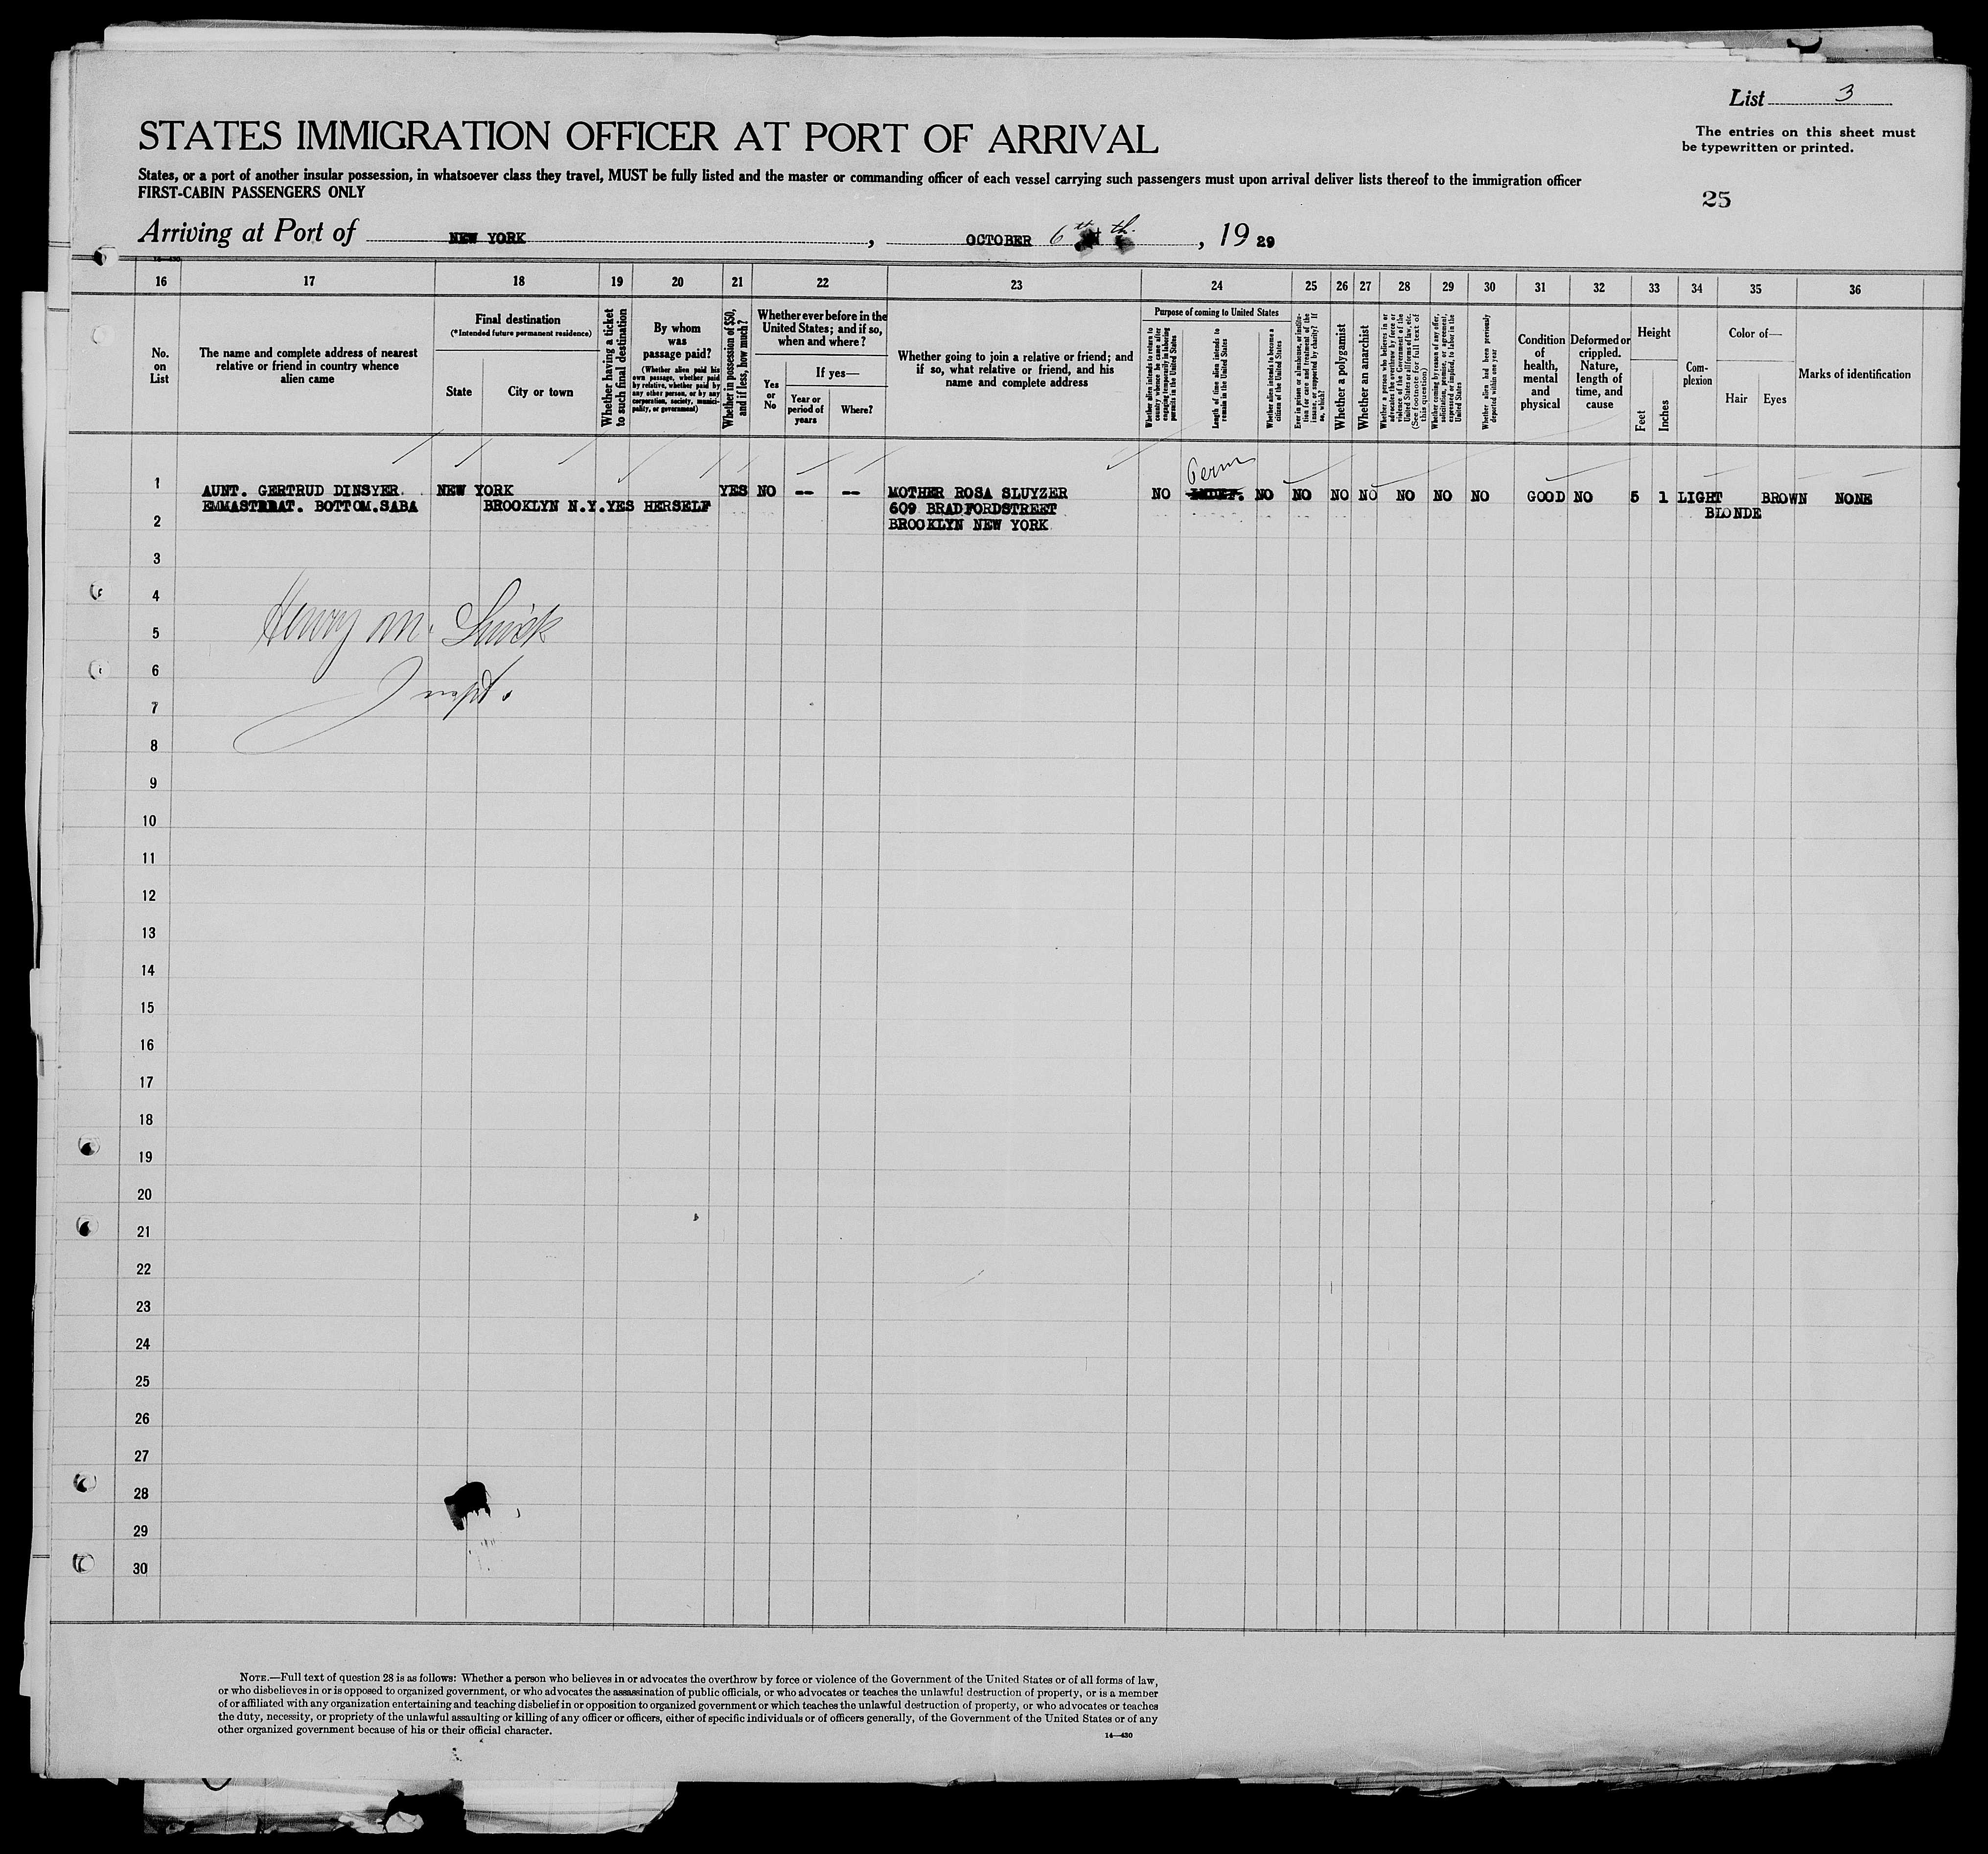 List 3
STATES IMMIGRATION OFFICER AT PORT OF ARRIVAL
The entries on this sheet must
be typewritten or printed.
States, or a port of another insular possession, in whatsoever class they travel, MUST be fully listed and the master or commanding officer of each vessel carrying such passengers must upon arrival deliver lists thereof to the immigration officer
FIRST-CABIN PASSENGERS ONLY
25
Arriving at Port of NEW YORK, OCTOBER 6th th., 1929
16 17 18 19 20 21 22 23 24 25 26 27 28 29 30 31 32 33 34 35 36
No. on List
The name and complete address of nearest
relative or friend in country whence
alien came
Final destination
(*Intended future permanent residence)
State
City or town
Whether having a ticket
to such final destination
By whom
was
passage paid?
(Whether alien paid his
own passage, whether paid
by relative, whether paid by
any other person, or by any
corporation, society, munici-
pality, or government)
Whether in possession of $50,
and if less, how much?
Whether ever before in the
United States; and if so,
when and where?
Yes
or
No
If yes—
Year or
period of
years
Where?
Whether going to join a relative or friend; and
if so, what relative or friend, and his
name and complete address
Purpose of coming to United States
Whether alien intends to return to
country whence he came after
engaging temporarily in laboring
pursuits in the United States
Length of time alien intends to
remain in the United States
Whether alien intends to become a
citizen of the United States
Ever in prison or almshouse, or institu-
tion for care and treatment of the
insane, or supported by charity? If
so, which?
Whether a polygamist
Whether an anarchist
Whether a person who believes in or
advocates the overthrow by force or
violence of the Government of the
United States or all forms of law, etc.
(See footnote for full text of
this question)
Whether coming by reason of any offer,
solicitation, promise, or agreement,
expressed or implied, to labor in the
United States
Whether alien had been previously
deported within one year
Condition
of
health,
mental
and
physical
Deformed or
crippled.
Nature,
length of
time, and
cause
Height
Feet
Inches
Com-
plexion
Color of—
Hair
Eyes
Marks of identification
Perm
1 AUNT. GERTRUD DINSYER. NEW YORK YES NO -- -- MOTHER ROSA SLUYZER NO INDEF. NO NO NO NO NO NO NO GOOD NO 5 1 LIGHT BROWN NONE
EMMASTRAAT. BOTTOM.SABA BROOKLYN N.Y. YES HERSELF 609 BRADFORDSTREET BLONDE
2 BROOKLYN NEW YORK
3
4
Henry M.
5
6
Inspt.
7
8
9
10
11
12
13
14
15
16
17
18
19
20
21
22
23
24
25
26
27
28
29
30
NOTE.—Full text of question 28 is as follows: Whether a person who believes in or advocates the overthrow by force or violence of the Government of the United States or of all forms of law,
or who disbelieves in or is opposed to organized government, or who advocates the assassination of public officials, or who advocates or teaches the unlawful destruction of property, or is a member
of or affiliated with any organization entertaining and teaching disbelief in or opposition to organized government or which teaches the unlawful destruction of property, or who advocates or teaches
the duty, necessity, or propriety of the unlawful assaulting or killing of any officer or officers, either of specific individuals or of officers generally, of the Government of the United States or of any
other organized government because of his or their official character.
14—430